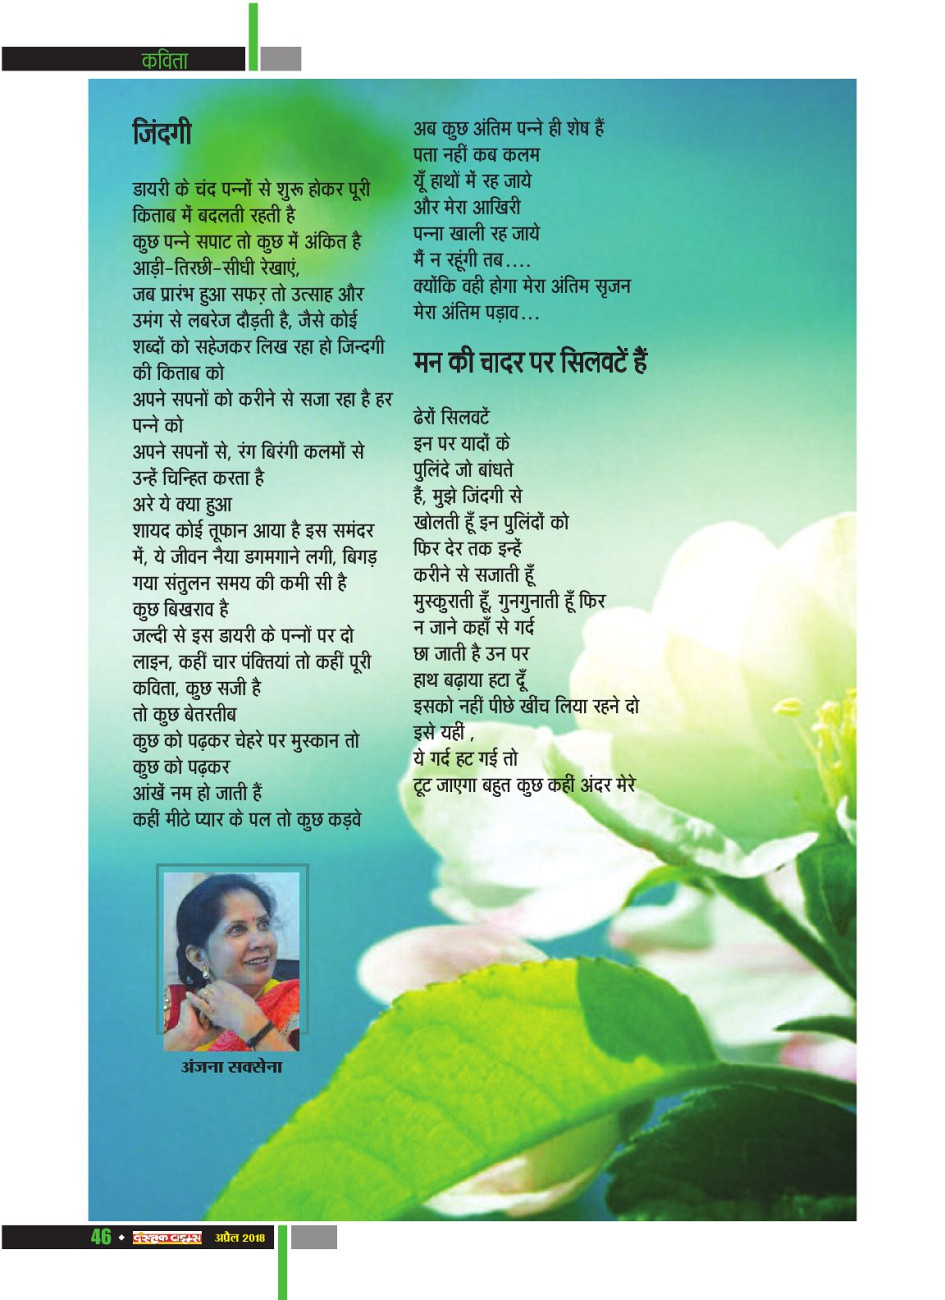 कविता
जिंदगी
डायरी के चंद पन्नों से शुरू होकर पूरी
किताब में बदलती रहती है
कुछ पन्ने सपाट तो कुछ में अंकित है
आड़ी-तिरछी-सीधी रेखाएं,
जब प्रारंभ हुआ सफर तो उत्साह और
उमंग से लबरेज दौड़ती है, जैसे कोई
शब्दों को सहेजकर लिख रहा हो जिन्दगी
की किताब को
अपने सपनों को करीने से सजा रहा है हर
पन्ने को
अपने सपनों से, रंग बिरंगी कलमों से
उन्हें चिन्हित करता है
अरे ये क्या हुआ
शायद कोई तूफान आया है इस समंदर
में, ये जीवन नैया डगमगाने लगी, बिगड़
गया संतुलन समय की कमी सी है
कुछ बिखराव है
जल्दी से इस डायरी के पन्नों पर दो
लाइन, कहीं चार पंक्तियां तो कहीं पूरी
कविता, कुछ सजी है
तो कुछ बेतरतीब
कुछ को पढ़कर चेहरे पर मुस्कान तो
कुछ को पढ़कर
आंखें नम हो जाती हैं
कहीं मीठे प्यार के पल तो कुछ कड़वे
अब कुछ अंतिम पन्ने ही शेष हैं
पता नहीं कब कलम
यूँ हाथों में रह जाये
और मेरा आखिरी
पन्ना खाली रह जाये
मैं न रहूंगी तब....
क्योंकि वही होगा मेरा अंतिम सृजन
मेरा अंतिम पड़ाव...
मन की चादर पर सिलवटें हैं
ढेरों सिलवटें
इन पर यादों के
पुलिंदे जो बांधते
हैं, मुझे जिंदगी से
खोलती हूँ इन पुलिंदों को
फिर देर तक इन्हें
करीने से सजाती हूँ
मुस्कुराती हूँ, गुनगुनाती हूँ फिर
न जाने कहाँ से गर्द
छा जाती है उन पर
हाथ बढ़ाया हटा दूँ
इसको नहीं पीछे खींच लिया रहने दो
इसे यहीं ,
ये गर्द हट गई तो
टूट जाएगा बहुत कुछ कहीं अंदर मेरे
अंजना सक्सेना
46 • अप्रैल 2018